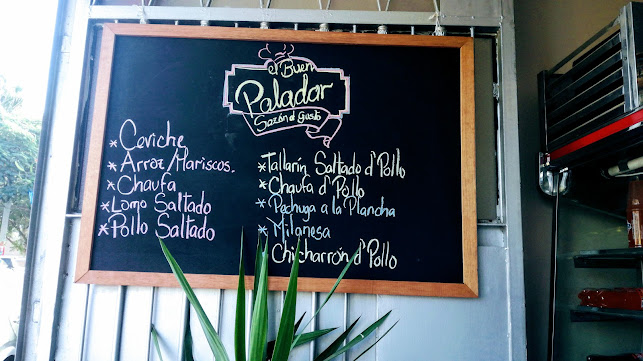 el Buen
Paladar
Sazón al Gusto
*Ceviche
*Arroz/Mariscos.
*Chaufa
*Lomo Saltado
*Pollo Saltado
*Tallarín Saltado d'Pollo
*Chaufa d'Pollo
*Pechuga a la Plancha
*Milanesa
*Chicharrón d'Pollo